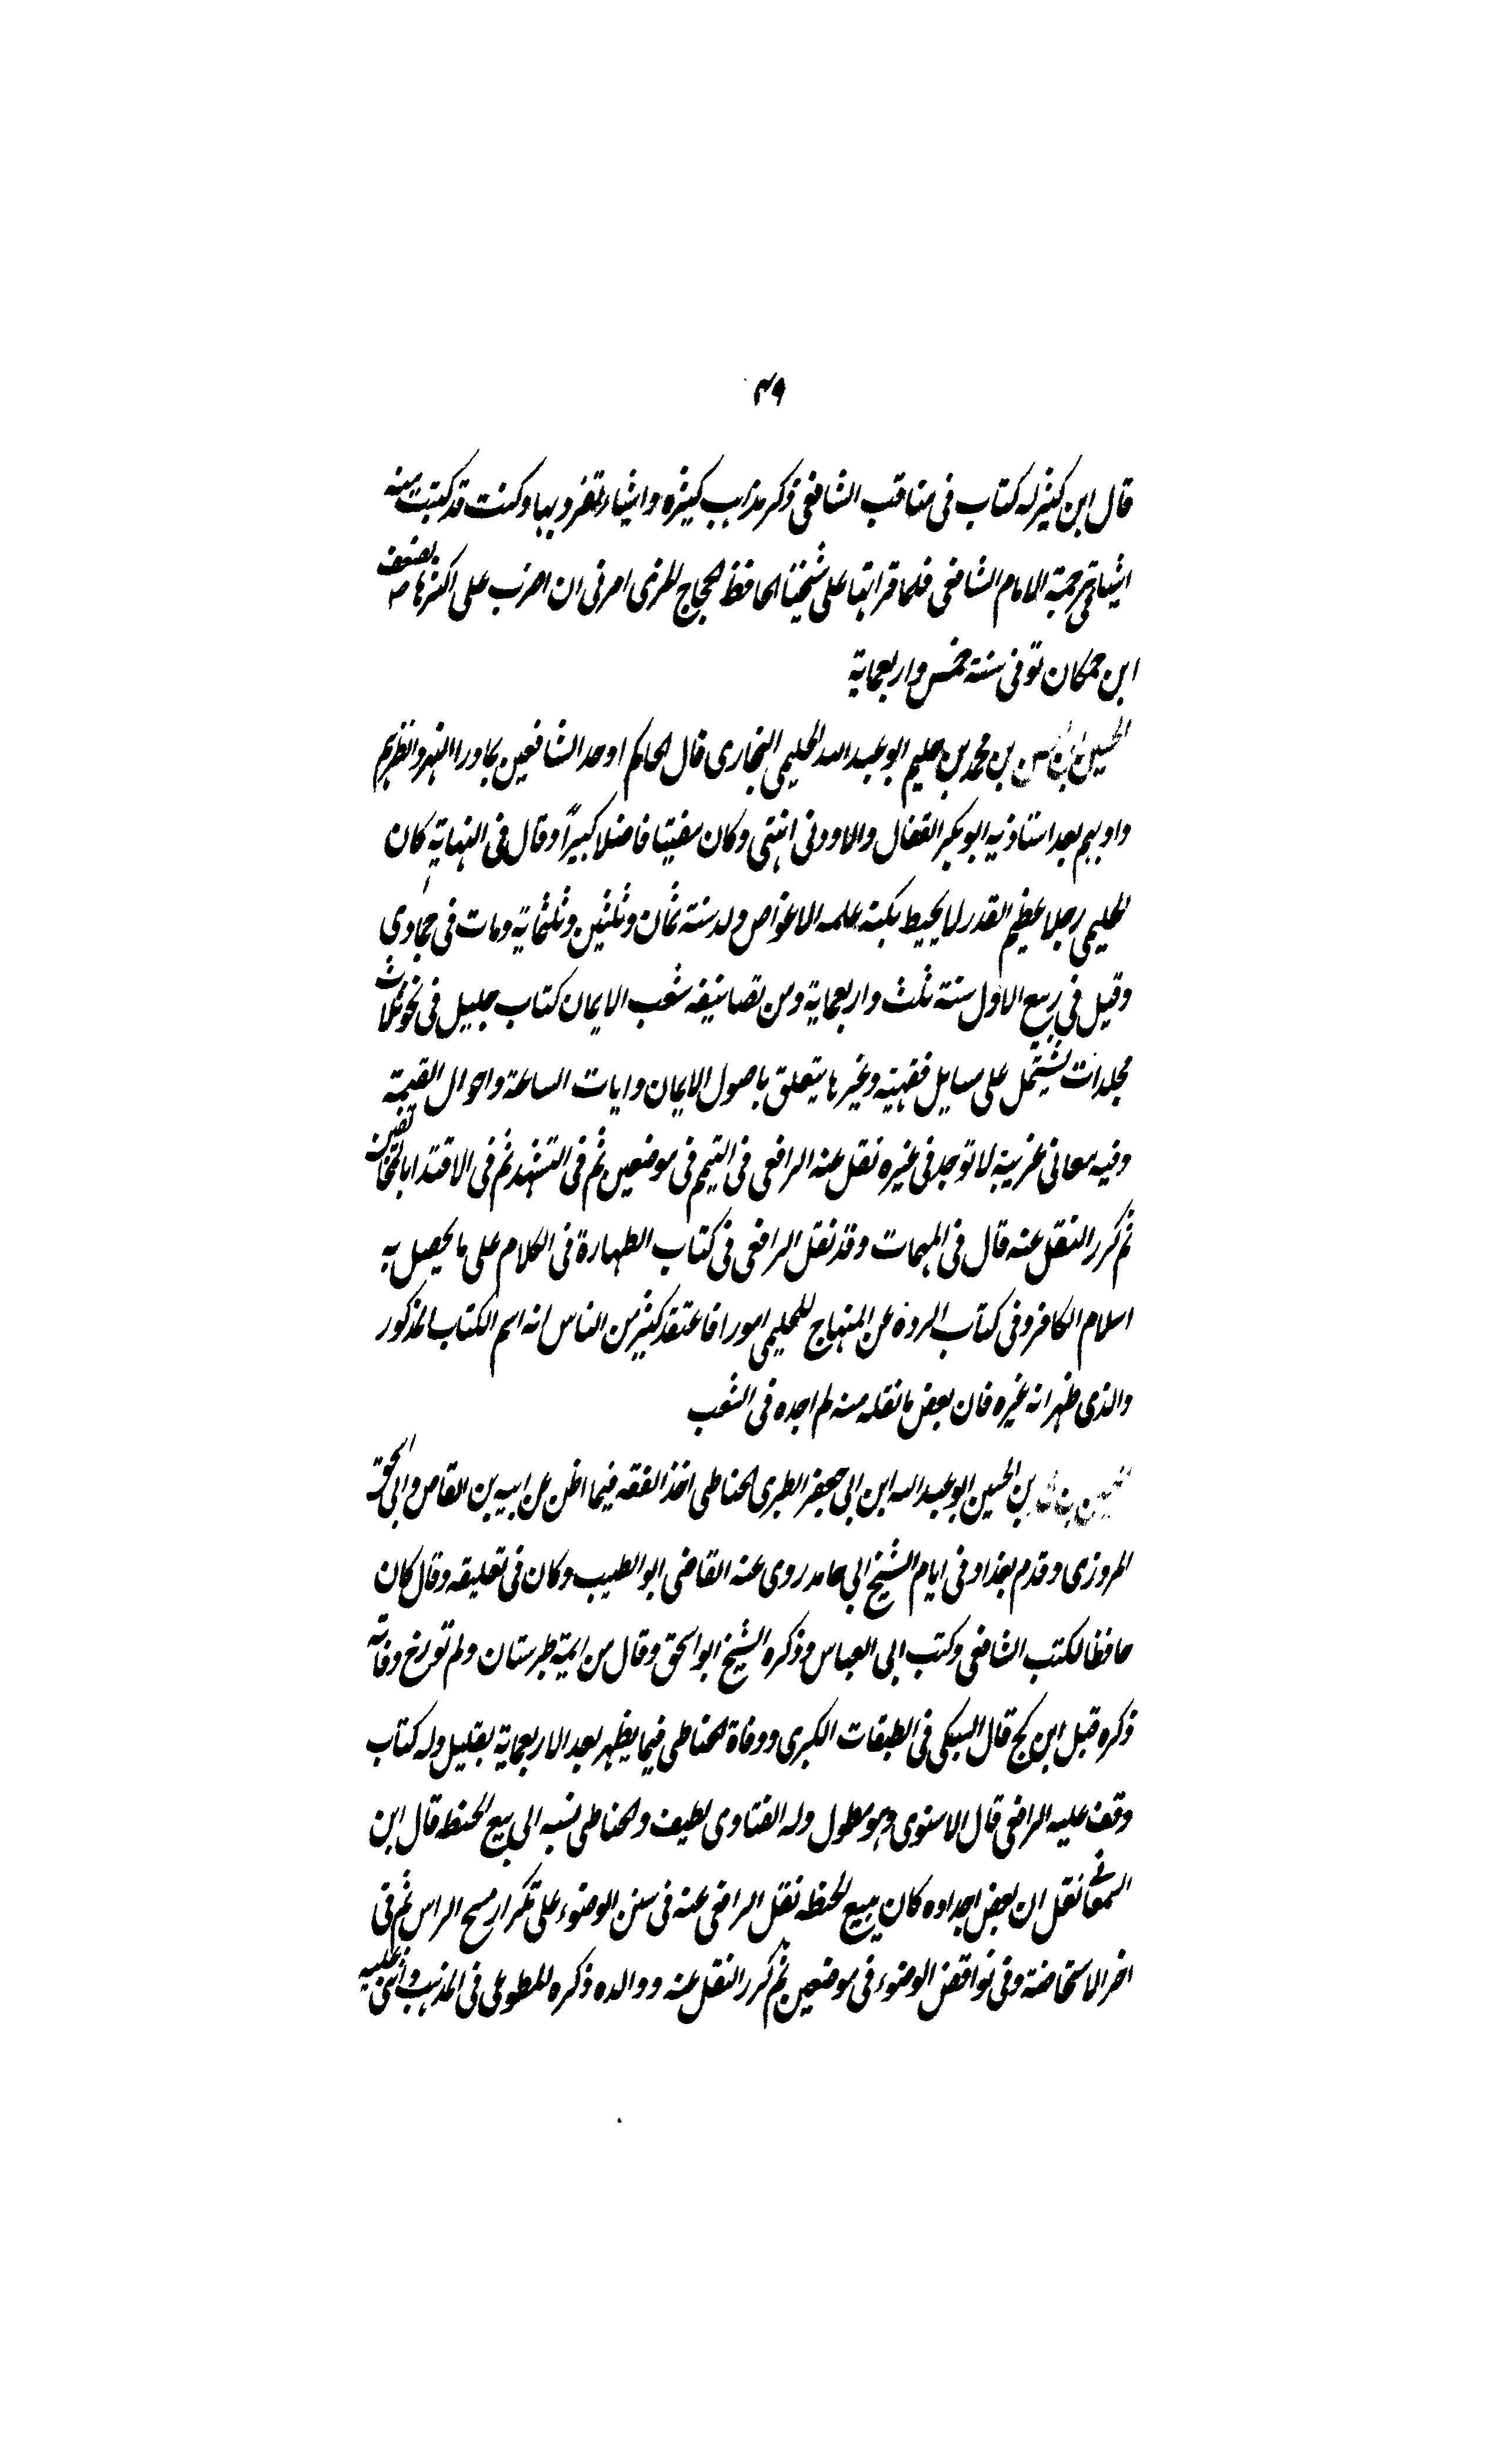 ٤٩
قال ابن كثير له كتاب في مناقب الشافعي ذكر مذاهب كثيرة واشياء تفرد بها وكنت قد كتبت منه
اشياء في ترجمة الامام الشافعي فلما قراتها على شيخنا الحافظ ابي الحجاج المزي امرني ان اضرب على اكثرها لضعف
ابن حمكان توفى سنة خمس واربعماية
الحسين بن الحسن بن محمد بن حليم ابو عبد الله الحليمي البخاري قال الحاكم اوحد الشافعيين بما ورا النهر وانظرهم
وادبهم بعد استاذيه ابو بكر القفال والاودني انتهى وكان مفتيا فاضلا كبيراً وقال في النهاية كان
الحليمي رجلا عظيم القدر لا يحيط بكنه علمه الا غواص ولد سنة ثمان وثلثين وثلثماية ومات في جمادى
وقيل في ربيع الاول سنة ثلث واربعماية ومن تصانيفه شعب الايمان كتاب جليل في نحو ثلاث
مجلدات يشتمل على مسايل فقهية وغيرها يتعلق باصول الايمان وايات الساعة واحوال القيمة
وفيه معاني غريبة لا توجد في غيره نقل عنه الرافعي في التيمم في موضعين ثم في التشهد ثم في الاقتدا بالمخالفين
ثم كرر النقل عنه قال في المهمات وقد نقل الرافعي في كتاب الطهارة في الكلام على ما يحصل به
اسلام الكافر وفي كتاب الردة عن المنهاج للحليمي امورا فاعتقد كثير من الناس انه اسم الكتاب المذكور
والذي ظهر انه غيره فان بعض ما نقله منه لم اجده في الشعب
الحسين بن محمد بن الحسين ابو عبد الله ابن ابي جعفر الطبري الحناطي اخذ الفقه فيما اظن عن ابيه بن القاص وابي اسحق
المروزي وقدم بغداد في ايام الشيخ ابي حامد روى عنه القاضي ابو الطيب وكان في تعليقه وقال كان
حافظا لكتب الشافعي وكتب ابي العباس وذكره الشيخ ابو اسحق وقال من ايمة طبرستان ولم تورخ وفاته
ذكره قبل ابن كج قال السبكي في الطبقات الكبرى ووفاة الحناطي فيما يظهر بعد الاربعماية بقليل وله كتاب
وقف عليه الرافعي قال الاسنوي وهو مطول وله الفتاوى لطيف والحناطي نسبه الى بيع الحنطة قال ابن
السمعاني نقل ان بعض اجداده كان يبيع الحنطه نقل الرافعي عنه في سنن الوضوء على تكرار مسح الراس ثم في
اخر الاستحاضة وفي نواقض الوضوء في موضعين ثم كرر النقل عنه ووالده ذكره المطوعي في المذهب واثنى عليه